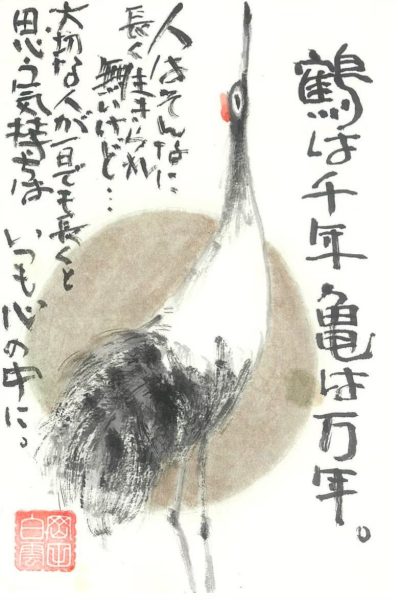 鶴は千年 亀は万年。
人はそんなに
長く生きられ
無いけど…
大切な人が一日でも長くと
思う気持ちは いつも心の中に。
白雲